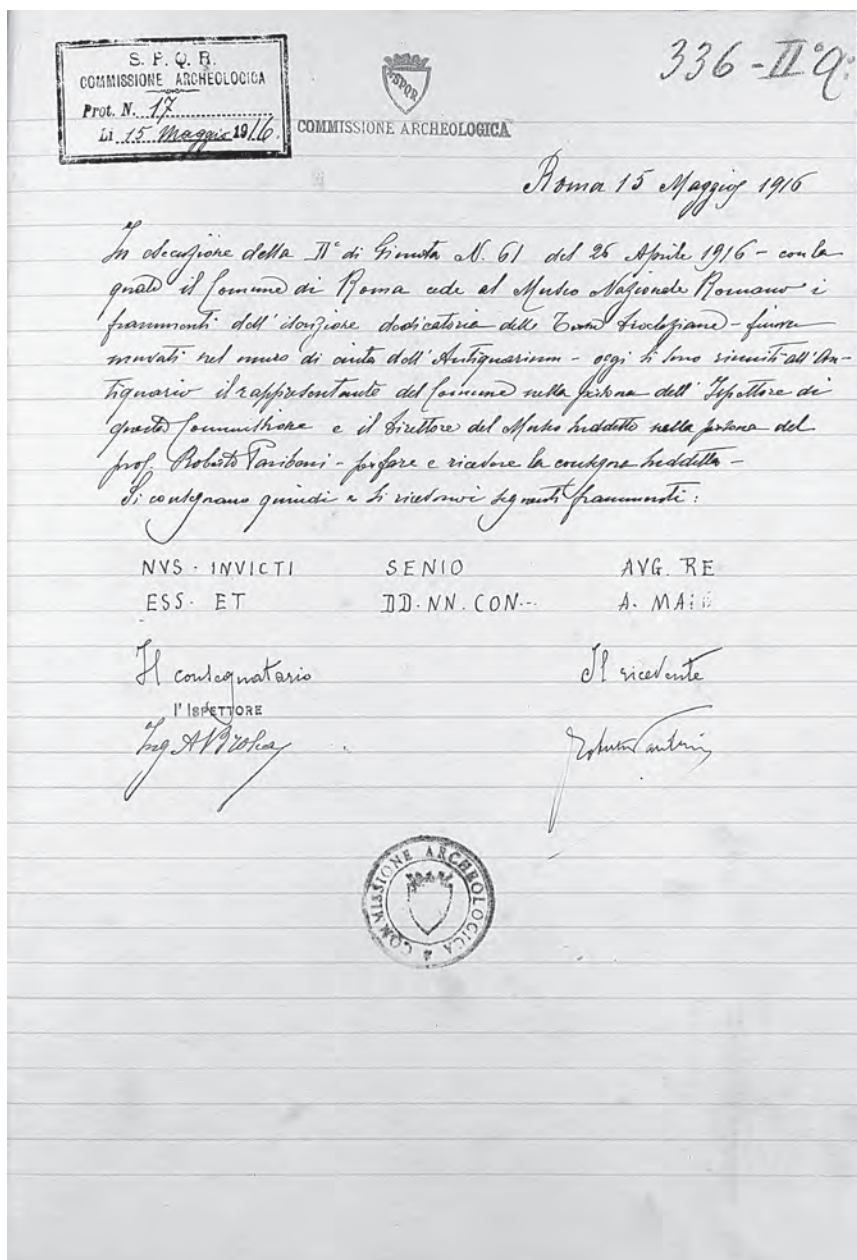 S. P. Q. R.
COMMISSIONE ARCHEOLOGICA
Prot. N. 17
Li 15 Maggio 1916.
SPQR
COMMISSIONE ARCHEOLOGICA
336-II°
Roma 15 Maggio 1916
In esecuzione della II° di Giunta N. 61 del 26 Aprile 1916 - con la
quale il Comune di Roma cede al Museo Nazionale Romano i
frammenti dell'iscrizione dedicatoria delle Terme Diocleziane - finora
murati nel muro di cinta dell'Antiquarium - oggi si sono riuniti all'An-
tiquario il rappresentante del Comune nella persona dell'Ispettore di
questa Commissione e il Direttore del Museo suddetto nella persona del
prof. Roberto Paribeni - per fare e ricevere la consegna suddetta -
Si consegnano quindi e si ricevono i seguenti frammenti:
NVS · INVICTI SENIO AVG. RE
ESS · ET DD · NN. CON... A. MAI
Il consegnatario Il ricevente
l'ISPETTORE
Ing Roberto Paribeni
COMMISSIONE ARCHEOLOGICA